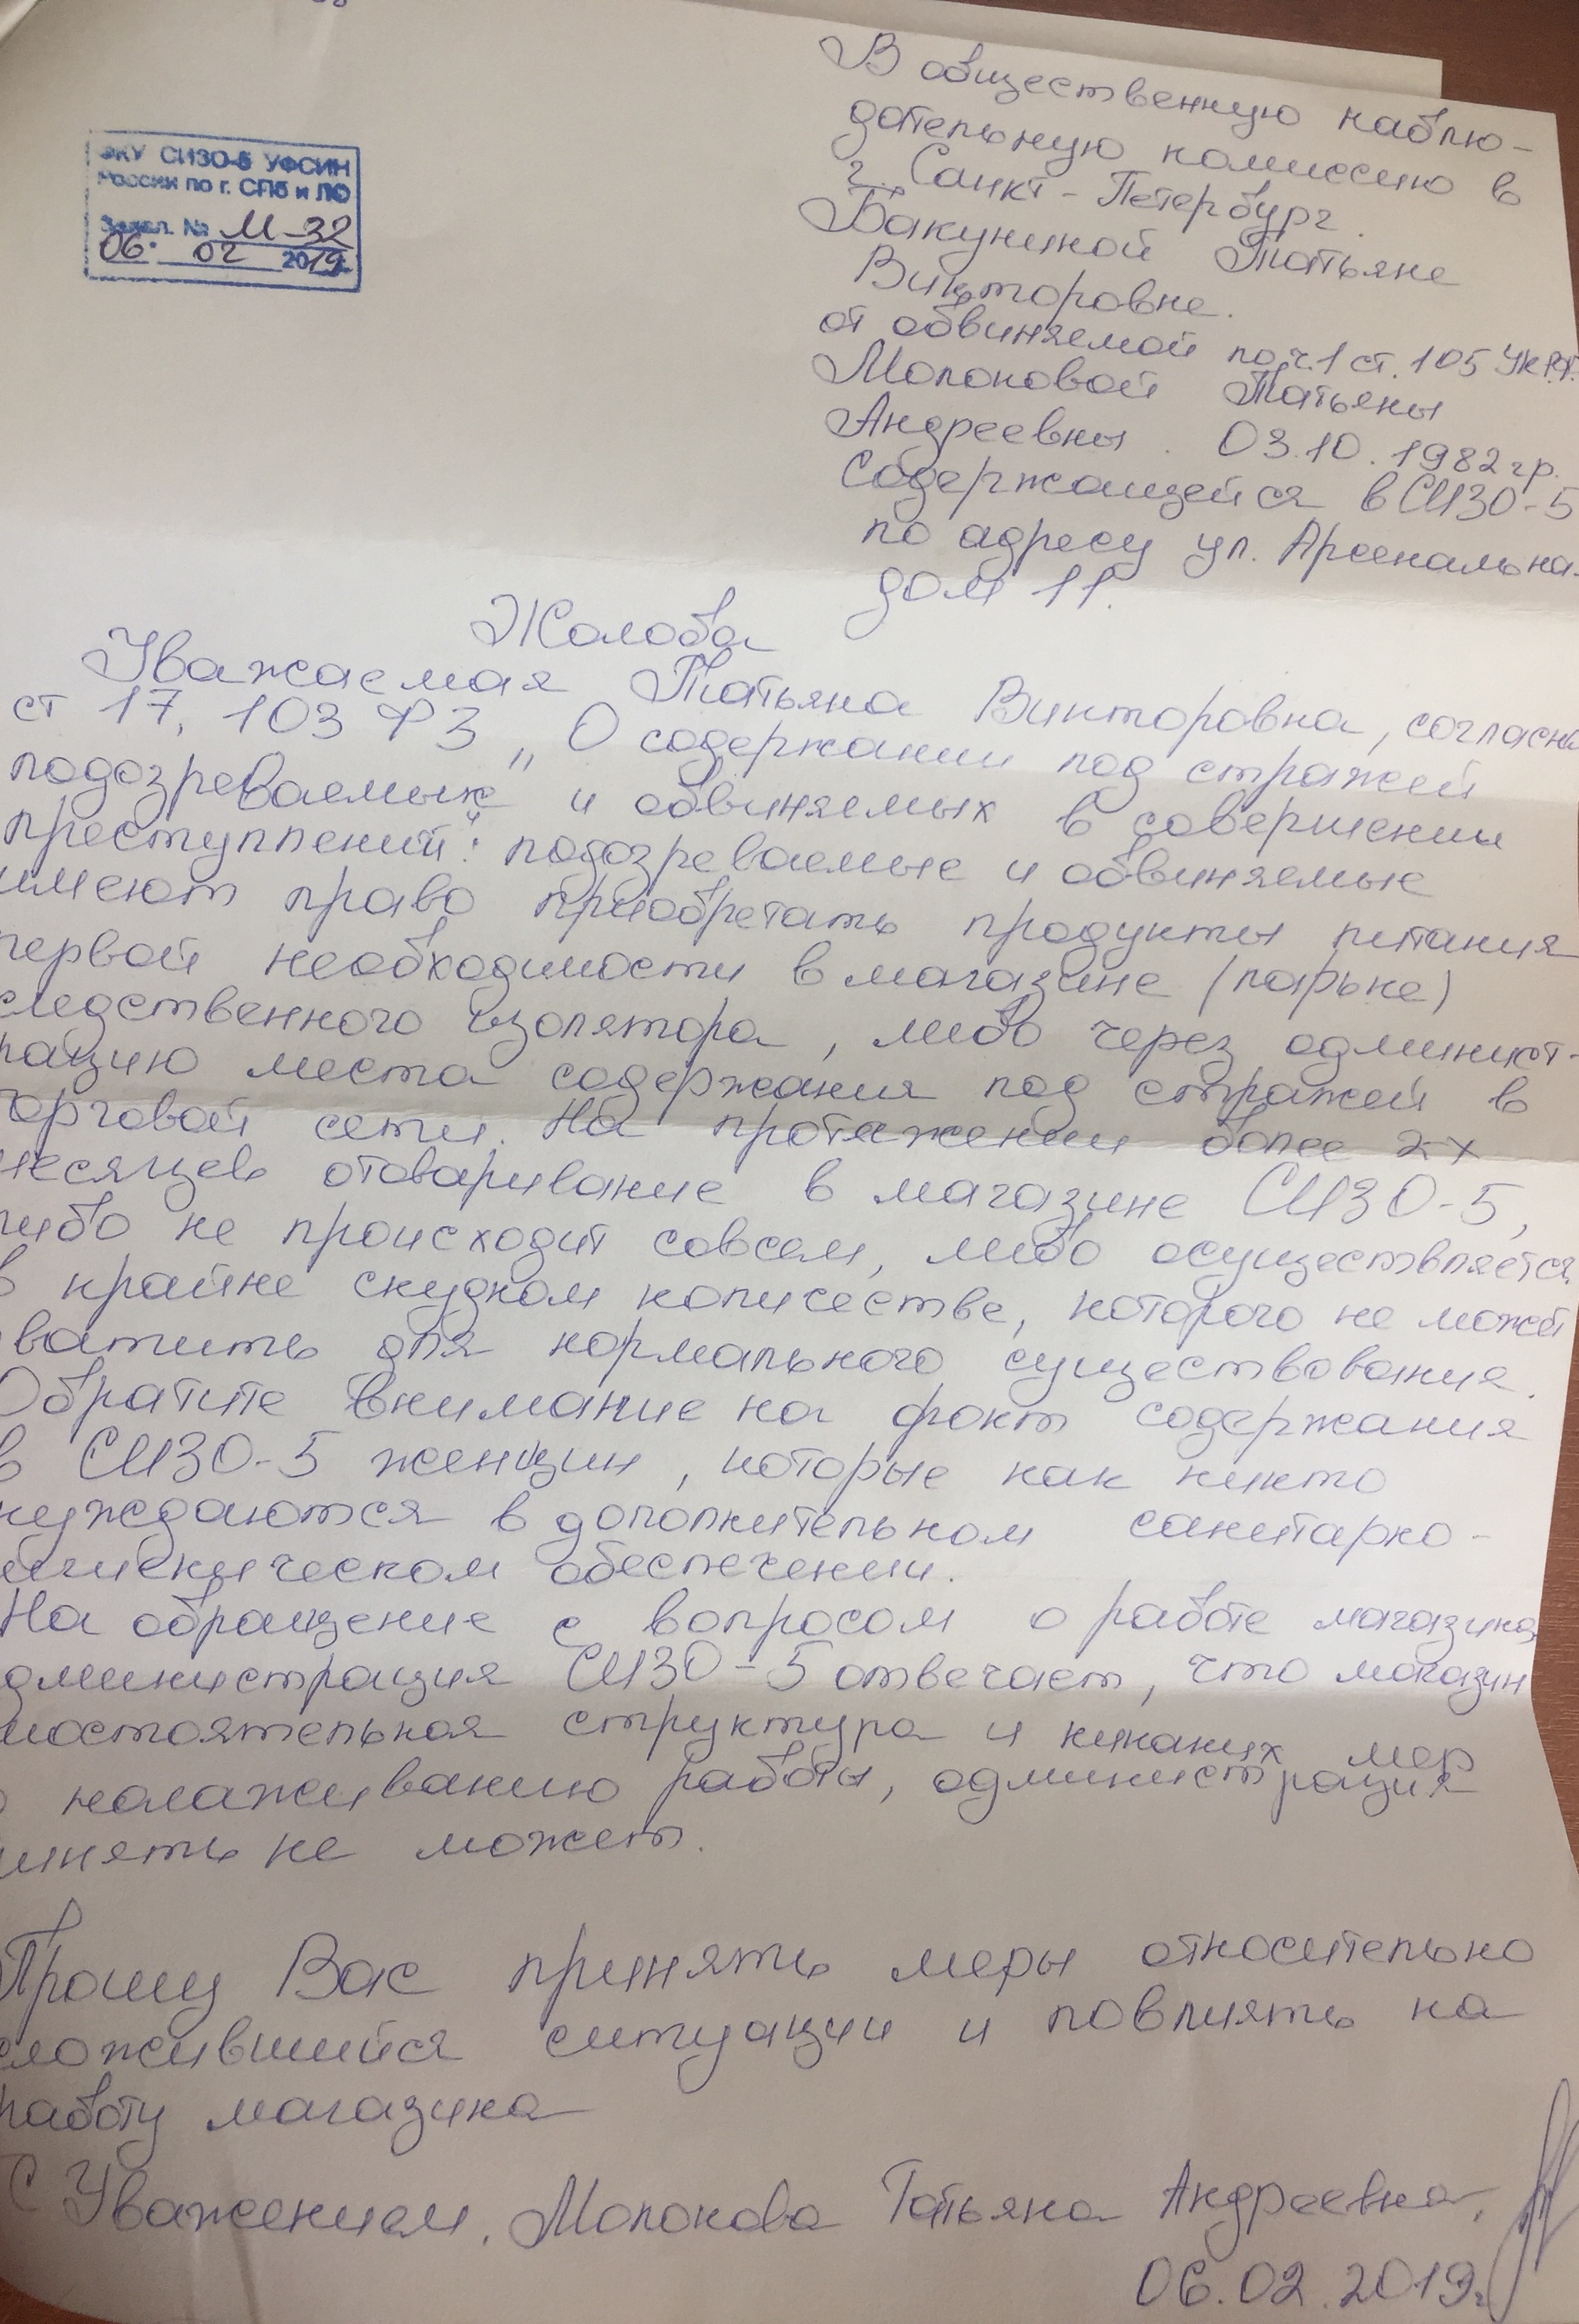 ФКУ СИЗО-5 УФСИН
России по г. СПб и ЛО
Заявл. № М-32
06. 02 2019г.
В общественную наблю-
дательную комиссию в
г. Санкт-Петербург.
Бакуниной Татьяне
Викторовне.
от обвиняемой по ч.1 ст. 105 УК РФ.
Молоковой Татьяны
Андреевны. 03.10.1982 гр.
Содержащейся в СИЗО-5
по адресу ул. Арсенальна
дом 11.
Жалоба
Уважаемая Татьяна Викторовна, согласно
ст 17, 103 ФЗ „О содержании под стражей
подозреваемых и обвиняемых в совершении
преступлений": подозреваемые и обвиняемые
имеют право приобретать продукты питания
первой необходимости в магазине (ларьке)
следственного изолятора, либо через админист-
рацию места содержания под стражей в
торговой сети. На протяжении более 2х
месяцев отоваривание в магазине СИЗО-5,
либо не происходит совсем, либо осуществляется
в крайне скудном количестве, которого не может
хватить для нормального существования.
Обратите внимание на факт содержания
в СИЗО-5 женщин, которые как никто
нуждаются в дополнительном санитарно-
гигиеническом обеспечении.
На обращение с вопросом о работе магазина
администрация СИЗО-5 отвечает, что магазин
самостоятельная структура и никаких мер
по налаживанию работы, администрация
принять не может.
Прошу Вас принять меры относительно
сложившийся ситуации и повлиять на
работу магазина
С Уважением, Молокова Татьяна Андреевна,
06.02.2019г